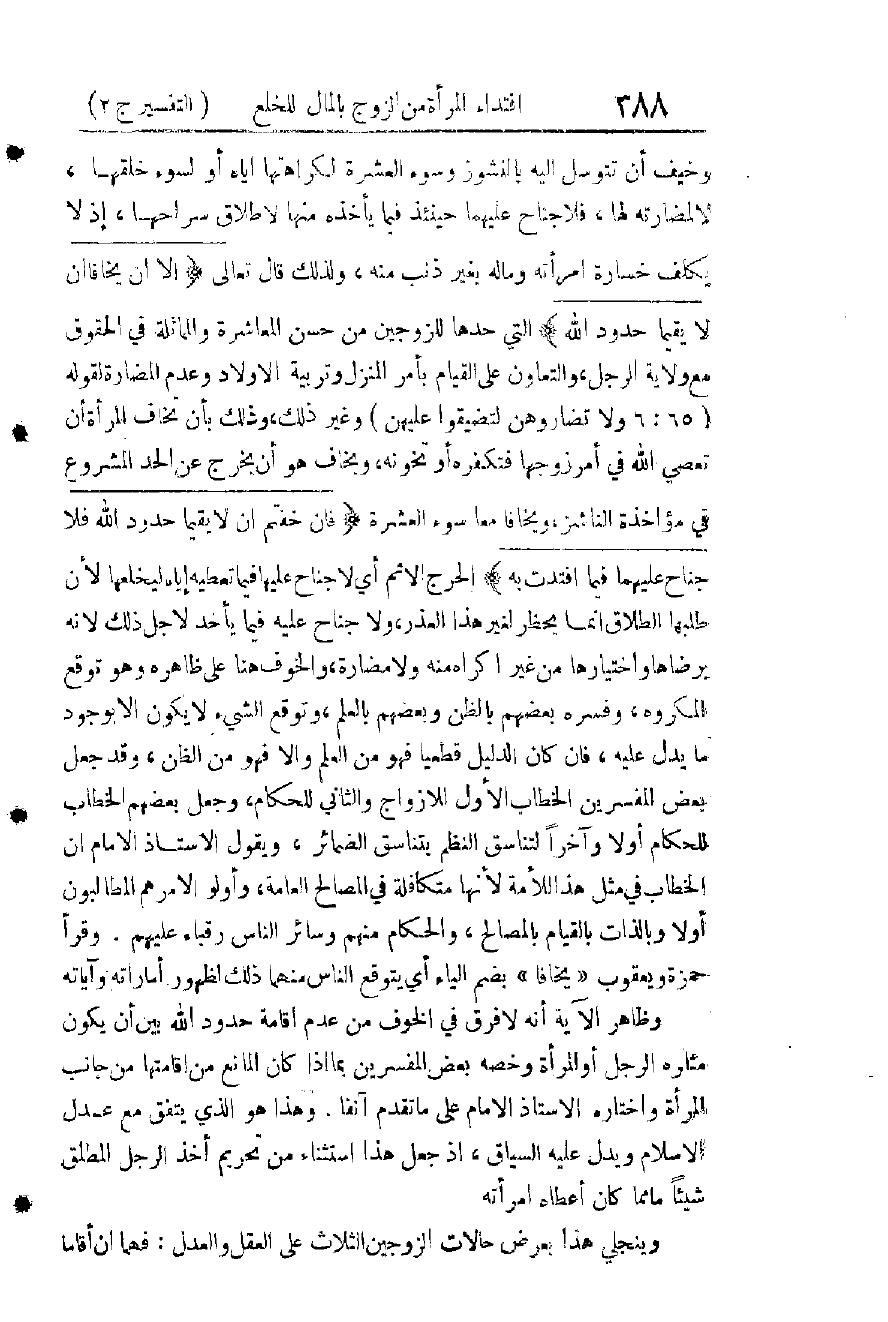 ٣٨٨ افتداء المرأة من الزوج بالمال للخلع ( التفسير ج ٢ )
وخيف أن تتوسل اليه بالنشوز وسوء العشرة لكراهتها اياه أو لسوء خلقهـا ،
لا لمضارته لها ، فلا جناح عليهما حينئذ فيما يأخذه منها لاطلاق سراحهـا ، إذ لا
يكلف خسارة امرأته وماله بغير ذنب منه ، ولذلك قال تعالى ﴿ الا ان يخافا ان
لا يقيما حدود الله ﴾ التي حدها للزوجين من حسن المعاشرة والمماثلة في الحقوق
مع ولاية الرجل ، والتعاون على القيام بأمر المنزل وتربية الاولاد وعدم المضارة لقوله
( ٦٥ : ٦ ولا تضاروهن لتضيقوا عليهن ) وغير ذلك ، وذلك بأن تخاف المرأة أن
تعصي الله في أمر زوجها فتكفره أو تخونه ، ويخاف هو أن يخرج عن الحد المشروع
في مؤاخذة الناشز ، ويخافا معا سوء العشرة ﴿ فان خفتم ان لا يقيما حدود الله فلا
جناح عليهما فيما افتدت به ﴾ الحرج الاثم أي لا جناح عليها فيما تعطيه إياه ليخلعها لأن
طلبها الطلاق انمـا يحظر لغير هذا العذر ، ولا جناح عليه فيما يأخذ لاجل ذلك لانه
برضاها واختيارها من غير اكراه منه ولا مضارة ، والخوف هنا على ظاهره وهو توقع
المكروه ، وفسره بعضهم بالظن وبعضهم بالعلم ، وتوقع الشيء لا يكون الا بوجود
ما يدل عليه ، فان كان الدليل قطعيا فهو من العلم والا فهو من الظن ، وقد جعل
بعض المفسرين الخطاب الأول للازواج والثاني للحكام ، وجعل بعضهم الخطاب
للحكام أولا وآخراً لتناسق النظم بتناسق الضمائر ، ويقول الاستـاذ الامام ان
الخطاب في مثل هذا للأمة لأنها متكافلة في المصالح العامة ، وأولو الامر هم المطالبون
أولا وبالذات بالقيام بالمصالح ، والحكام منهم وسائر الناس رقباء عليهم . وقرأ
حمزة ويعقوب « يخافا » بضم الياء أي يتوقع الناس منهما ذلك لظهور أماراته وآياته
وظاهر الآية أنه لا فرق في الخوف من عدم اقامة حدود الله بين أن يكون
مثاره الرجل أو المرأة وخصه بعض المفسرين بما اذا كان المانع من اقامتها من جانب
المرأة واختاره الاستاذ الامام على ما تقدم آنفا . وهذا هو الذي يتفق مع عـدل
الاسلام ويدل عليه السياق ، اذ جعل هذا استثناء من تحريم أخذ الرجل المطلق
شيئاً مامما كان أعطاه امرأته
وينجلي هذا بعرض حالات الزوجين الثلاث على العقل والعدل : فهما ان أقاما